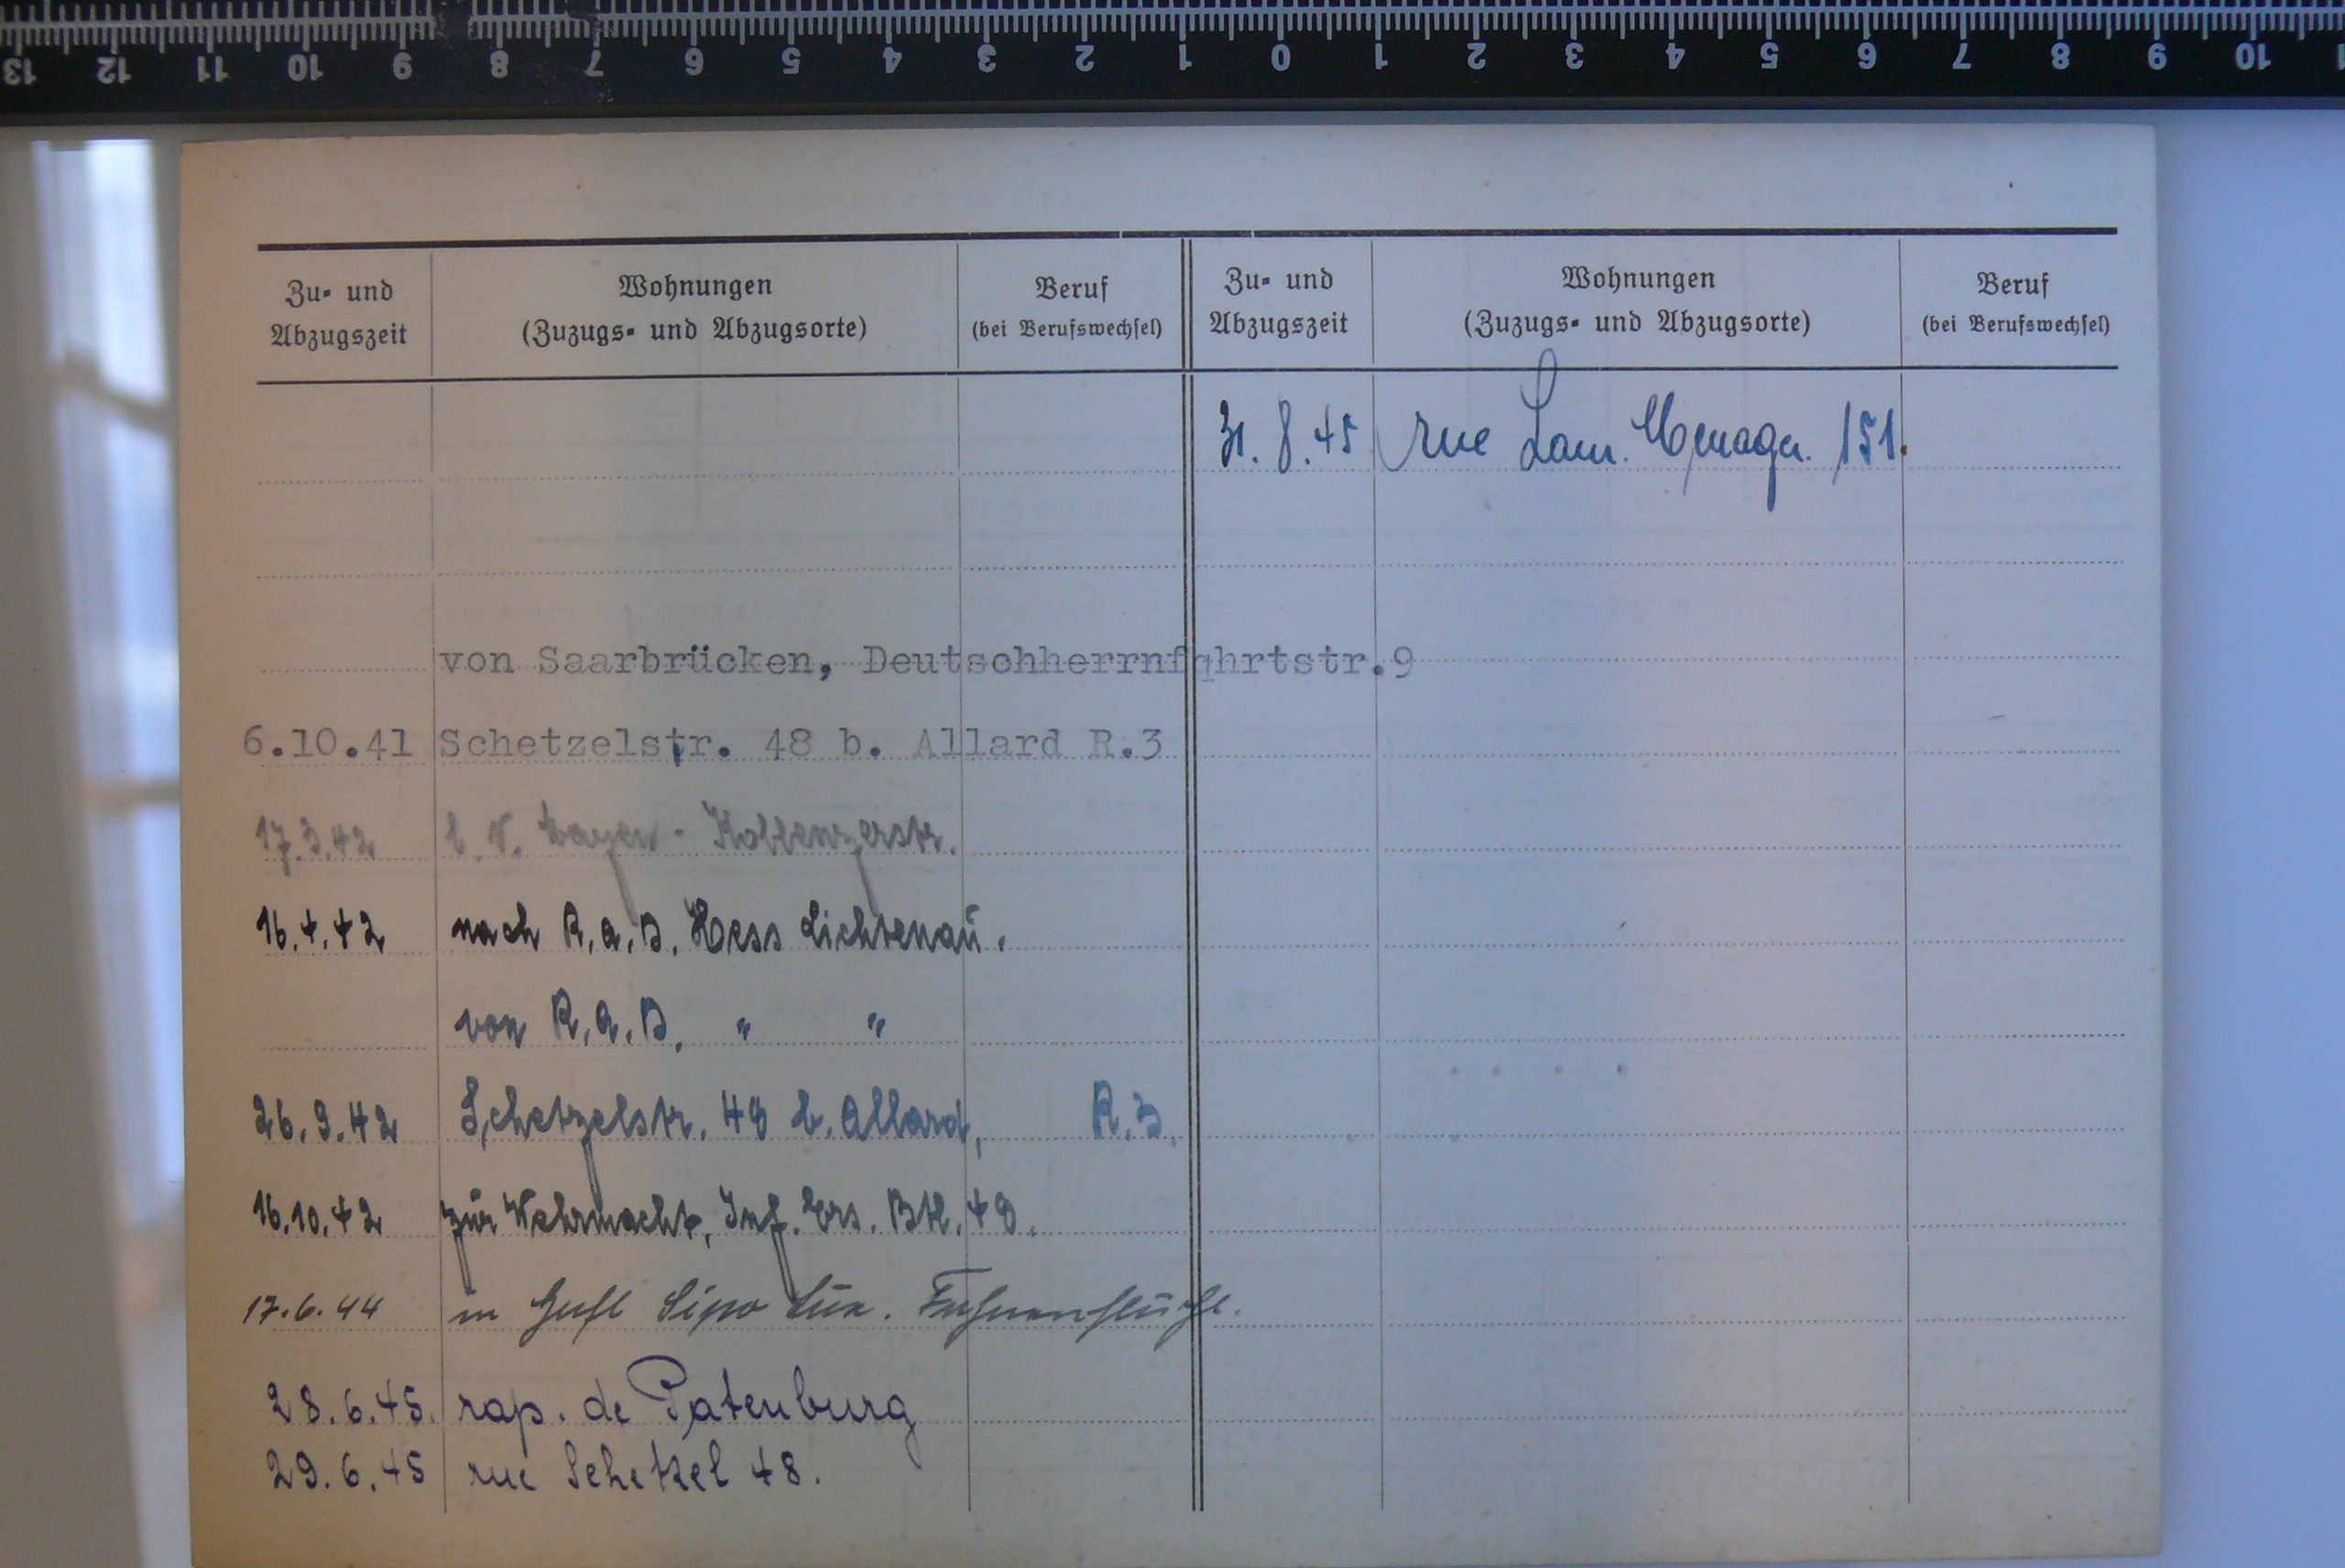 13 12 11 10 9 8 7 6 5 4 3 2 1 0 1 2 3 4 5 6 7 8 9 10
Zu- und Abzugszeit
Wohnungen
(Zuzugs- und Abzugsorte)
Beruf
(bei Berufswechsel)
Zu- und Abzugszeit
Wohnungen
(Zuzugs- und Abzugsorte)
Beruf
(bei Berufswechsel)
von Saarbrücken, Deutschherrnfqhrtstr.9
6.10.41 Schetzelstr. 48 b. Allard R.3
17.3.42 Koblenzerstr.
16.4.42 nach R.a.D. Hess Lichtenau.
von R.a.D. " "
26.9.42 Schetzelstr. 48 b. Allard, R.3.
16.10.42 zur Wehrmacht, Inf. Ers. Btl. 48.
17.6.44 in Haft Sipo Lux. Fahnenflucht.
28.6.45. rap. de Patenburg
29.6.45 rue Schetzel 48.
31.8.45 rue Lam. Menager. 151.